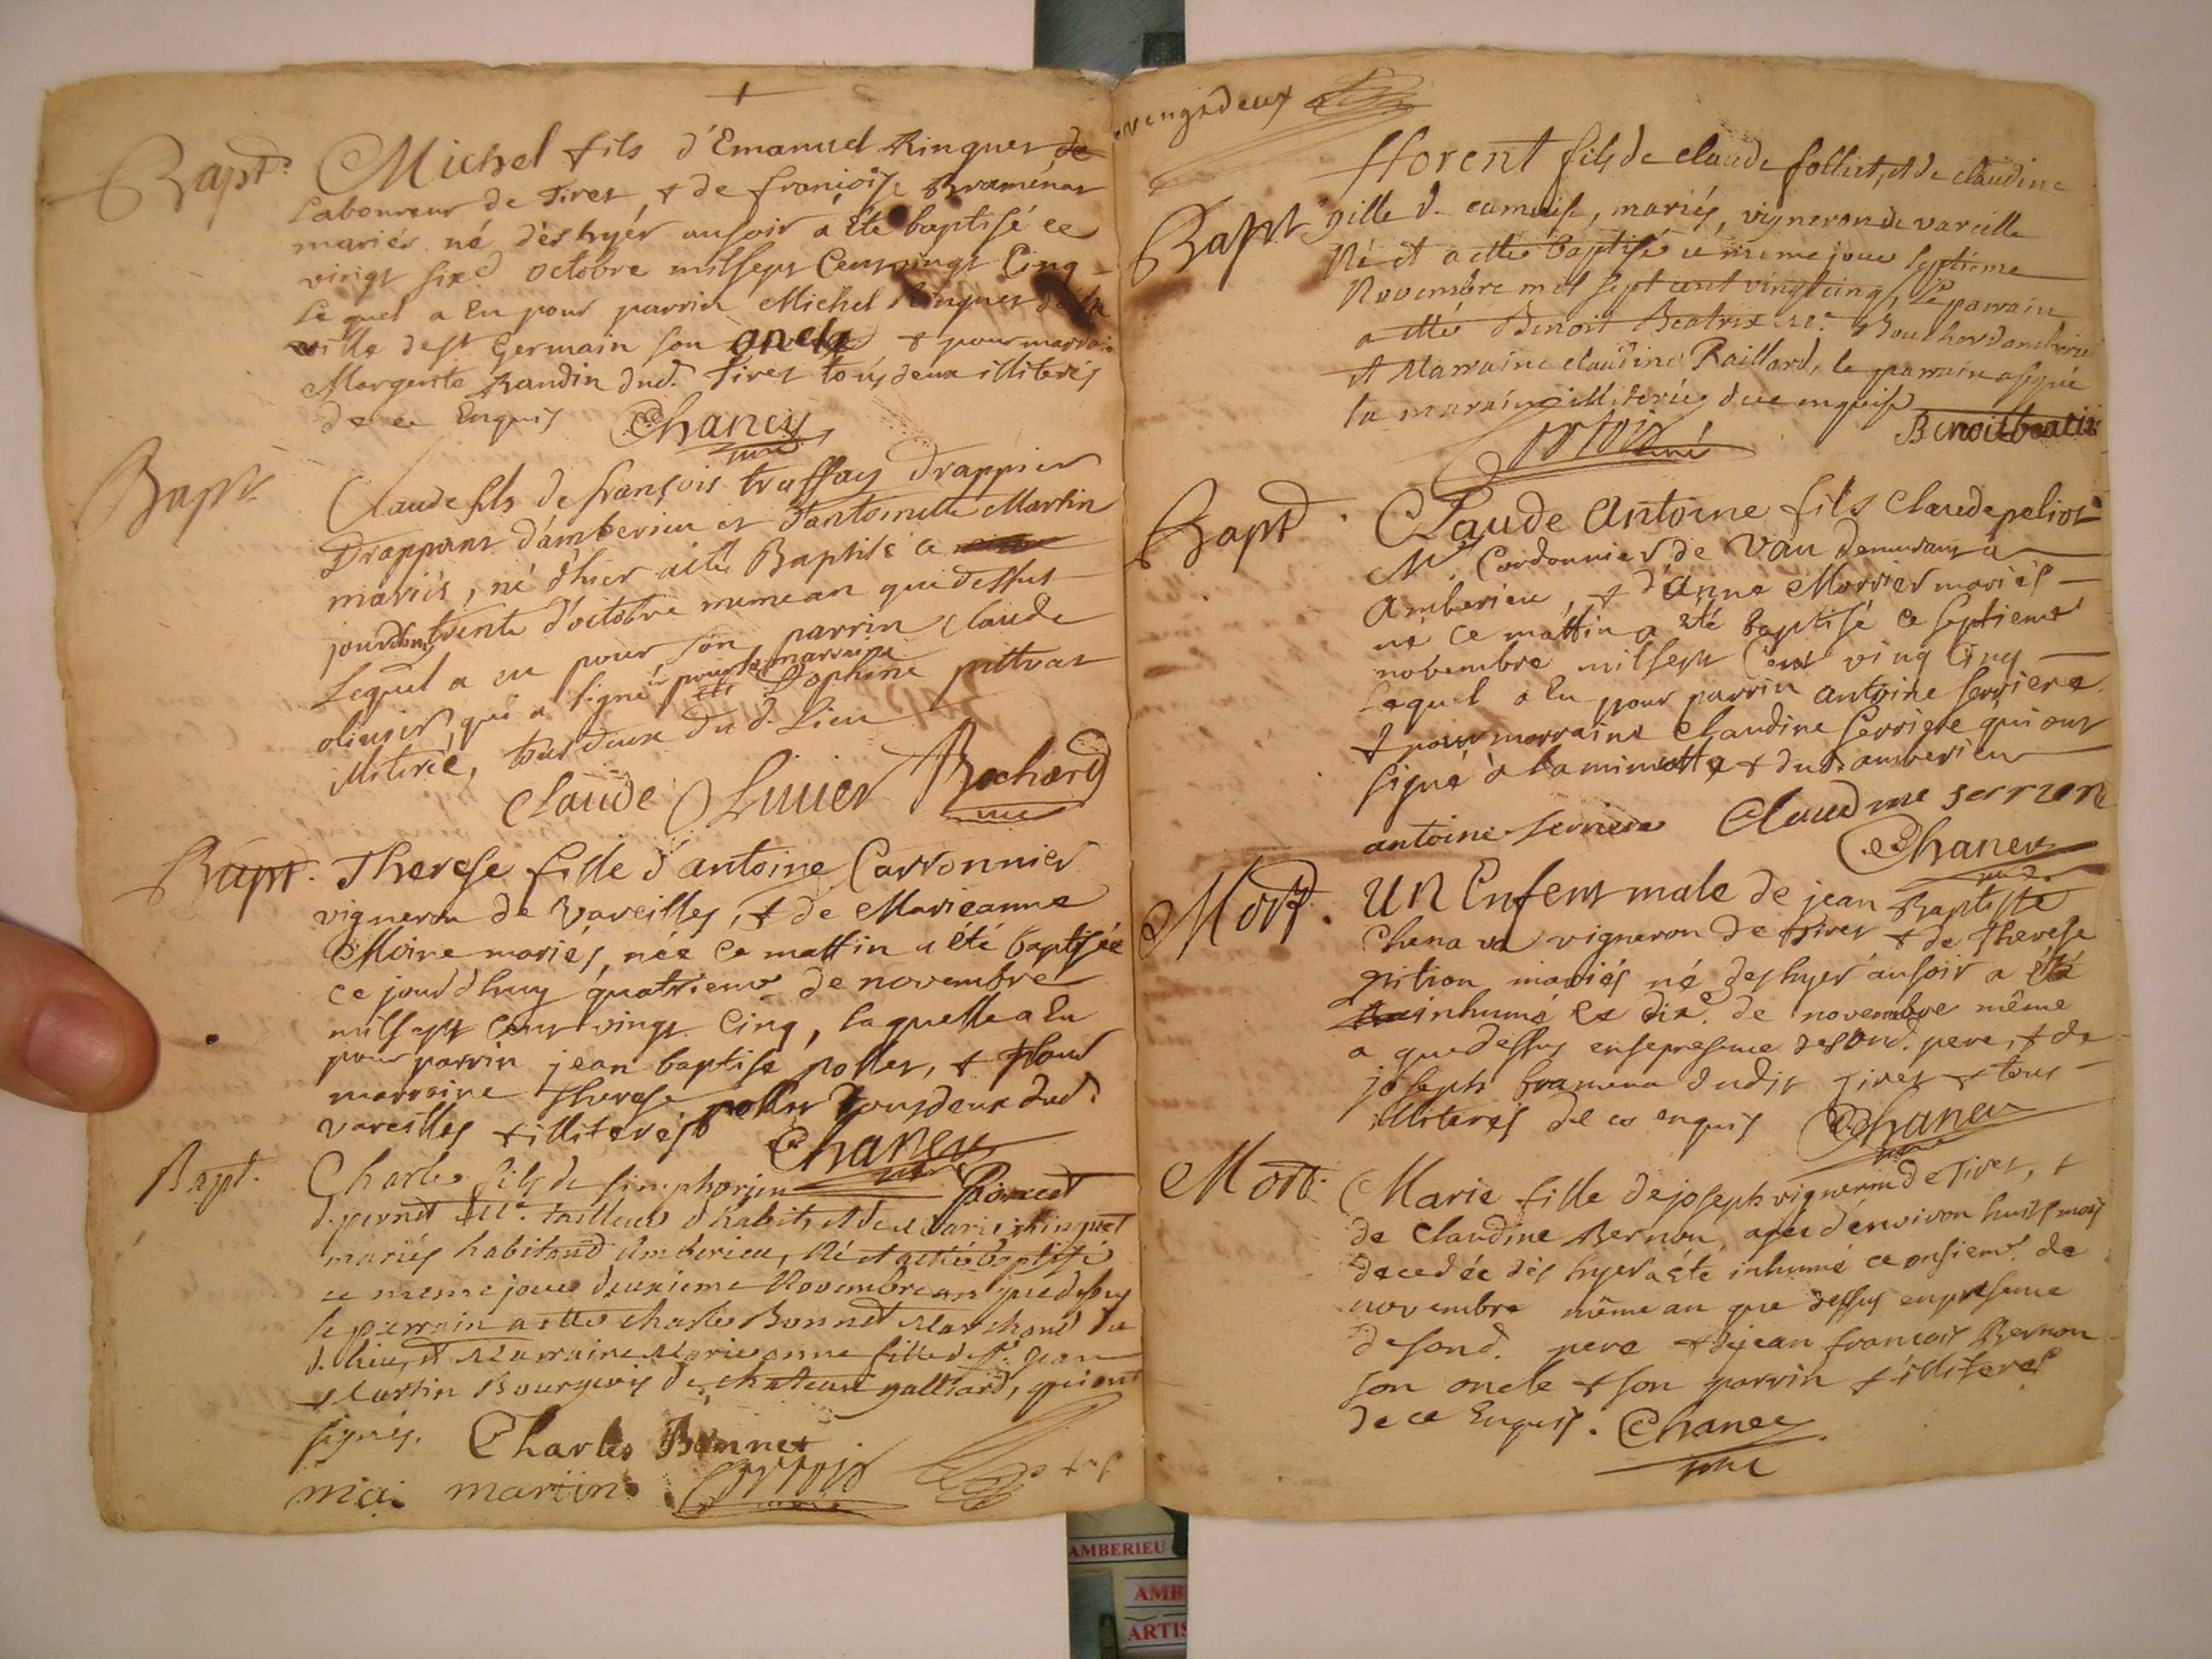 Bapt. Michel fils d'Emanuel Ringuet de
Laboureur de Tiret, & de françoise Bramenat
mariés né dès hyér ausoir a été baptisé ce
vingt sixe octobre milsept Cent vingt Cinq
Lequel a Eu pour parrin Michel Ringuet de la
ville de st Germain son oncle & pour marrai.
Margueritte Baudin dud. Tiret tous deux illiterés
de ce Enquis Chaney
curé
Bapt. Claude fils de françois truffay drappier
Drappant d'amberieu et d'antoinette Martin
mariés, né d'hier a été Baptisé ce
jourdhuy trente d'octobre mime an que dessus
Lequel a eu pour son parrin claude
olivier, qui a signé et pour sa marraine
Dophine pittrat
illiterée, tous deux du d. Lieu
Claude Oliuier Bochard
vic
Bapt. Therese fille d'antoine Carronnier
vigneron de Vareilles, & de Marieanne
Moine mariés, née ce mattin a été baptisée
ce jourdhuy quatrieme de novembre
milsept cent vingt Cinq, laquelle a Eu
pour parrin jean baptise pollet, & pour
marraine therese pollet Tous deux dud.
vareilles & illiterés Chaney
curé
Bapt. Charles fils de simphorien Poncet
d. pernet Me. tailleur d'habits et de Marie ringuet
mariés habitand Amberieu, Né et a etté baptisé
ce meme jour deuxieme Novembre an que dessus
le parrain a etté charles Bonnet Marchand du
d. lieu, et Marraine Marieanne fille de Sr. Jean
Martin Bourgeois de chateau galliard, qui ont
signés. Charles Bonnet
mai martin
vingtdeux
fforent fils de claude folliet, et de claudine
Bapt. gille d. , mariés, vigneron de vareille
Né et a etté baptisé ce meme jour septieme
Novembre mil sept cent vingt cinq, Le parrain
a etté Benoit Beatrix Me. d'amberieu
et Marraine claudine Raillard, le parrain a signé
la marraine illiterée de ce enquise
curé Benoit beatrix
Bapt. Claude Antoine fils Claude peliot
Me. Cordonnier de Vau demeurant a
Amberieu, & d'Anne Morrier mariés
né ce mattin a été baptisé ce septieme
nobembre milsept Cent ving Cinq
Lequel a Eu pour parrin antoine serriere
& pour marraine Claudine serriere qui ont
signé a la minutte & dud. amberieu
antoine serriere Claudine serriere
Chaney
curé
Mort. UN Enfent male de jean Baptiste
Chenava vigneron de Tiret & de therese
pition mariés né des hyer ausoir a été
inhumé Le dixe. de novembre même
a que dessus en sepresence de sond. pere, & de
joseph bramena dudit Tiret & tous
illiterés de ce enquis Chaney
curé
Mort. Marie fille de joseph vigneron de Tiret, &
de Claudine Bernon, agée d'environ huit mois
decedée dès hyer a été inhumé ce onsieme. de
novembre même an que dessus en presence
de sond. pere & de jean francois Bernon
son oncle & son parrin & illiterés
de ce Enquis. Chaney
curé
AMBERIEU
AMB
ARTIS